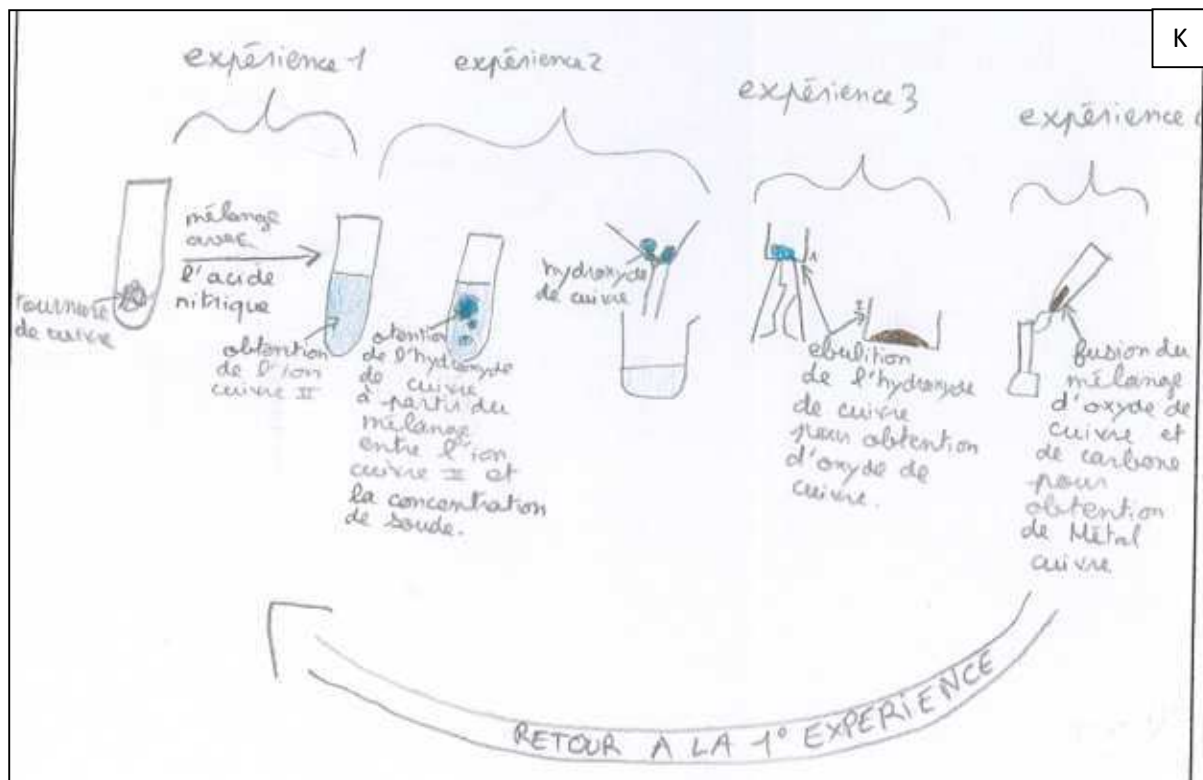 K
expérience 1
expérience 2
expérience 3
expérience
tournure
de cuivre
mélange
avec
l'acide
nitrique
obtention
de l'ion
cuivre II
otention
de l'hydroxyde
de cuivre
à partir du
mélange
entre l'ion
cuivre II et
la concentration
de soude.
hydroxyde
de cuivre
1
2
ebulition
de l'hydroxyde
de cuivre
pour obtention
d'oxyde de
cuivre.
fusion du
mélange
d'oxyde de
cuivre et
de carbone
pour
obtention
de Métal
cuivre
RETOUR A LA 1° EXPERIENCE